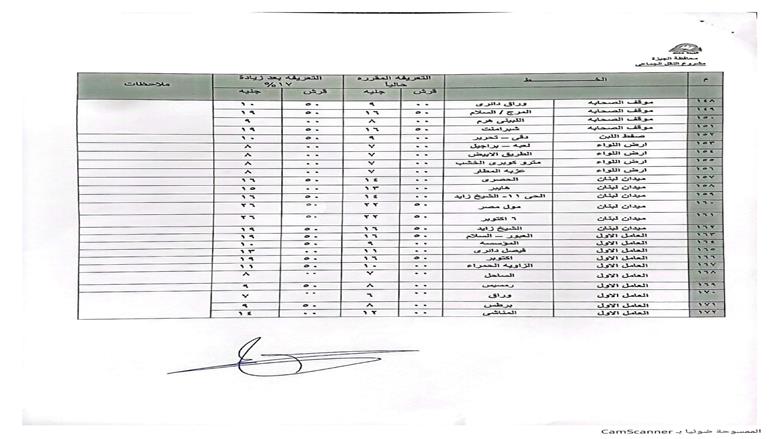 محافظة الجيزة
مشروع النقل الجماعى
م الخط التعريفه المقرره حاليا التعريفه بعد زيادة ١٧% ملاحظات
قرش جنيه قرش جنيه
١٤٨ موقف الصحابه وراق دائرى ٠٠ ٩ ٥٠ ١٠
١٤٩ موقف الصحابه المرج / السلام ٥٠ ١٦ ٥٠ ١٩
١٥٠ موقف الصحابه اللبينى هرم ٠٠ ٨ ٠٠ ٩
١٥١ موقف الصحابه شبرامنت ٥٠ ١٦ ٥٠ ١٩
١٥٢ صفط اللبن دقى - تحرير ٠٠ ٩ ٥٠ ١٠
١٥٣ ارض اللواء لعبه - براجيل ٠٠ ٧ ٠٠ ٨
١٥٤ ارض اللواء الطريق الابيض ٠٠ ٧ ٠٠ ٨
١٥٥ ارض اللواء مترو كوبرى الخشب ٠٠ ٧ ٠٠ ٨
١٥٦ ارض اللواء عزبه المطار ٠٠ ٧ ٠٠ ٨
١٥٧ ميدان لبنان الحصرى ٠٠ ١٤ ٥٠ ١٦
١٥٨ ميدان لبنان هايبر ٠٠ ١٣ ٠٠ ١٥
١٥٩ ميدان لبنان الحى ١١- الشيخ زايد ٠٠ ١٤ ٥٠ ١٦
١٦٠ ميدان لبنان مول مصر ٥٠ ٢٢ ٥٠ ٢٦
١٦١ ميدان لبنان ٦ اكتوبر ٥٠ ٢٢ ٥٠ ٢٦
١٦٢ ميدان لبنان الشيخ زايد ٥٠ ١٦ ٥٠ ١٩
١٦٣ العامل الاول العبور - السلام ٥٠ ١٦ ٥٠ ١٩
١٦٤ العامل الاول المؤسسه ٠٠ ٩ ٥٠ ١٠
العامل الاول فيصل دائرى ٠٠ ١١ ٠٠ ١٣
العامل الاول اكتوبر ٥٠ ١٦ ٥٠ ١٩
١٦٧ العامل الاول الزاويه الحمراء ٠٠ ١٠ ٥٠ ١١
١٦٨ العامل الاول الساحل ٠٠ ٧ ٠٠ ٨
١٦٩ العامل الاول رمسيس ٠٠ ٨ ٥٠ ٩
١٧٠ العامل الاول وراق ٠٠ ٦ ٠٠ ٧
١٧١ العامل الاول برطس ٠٠ ٨ ٥٠ ٩
١٧٢ العامل الاول المناشى ٠٠ ١٢ ٠٠ ١٤
الممسوحة ضوئيا بـ CamScanner